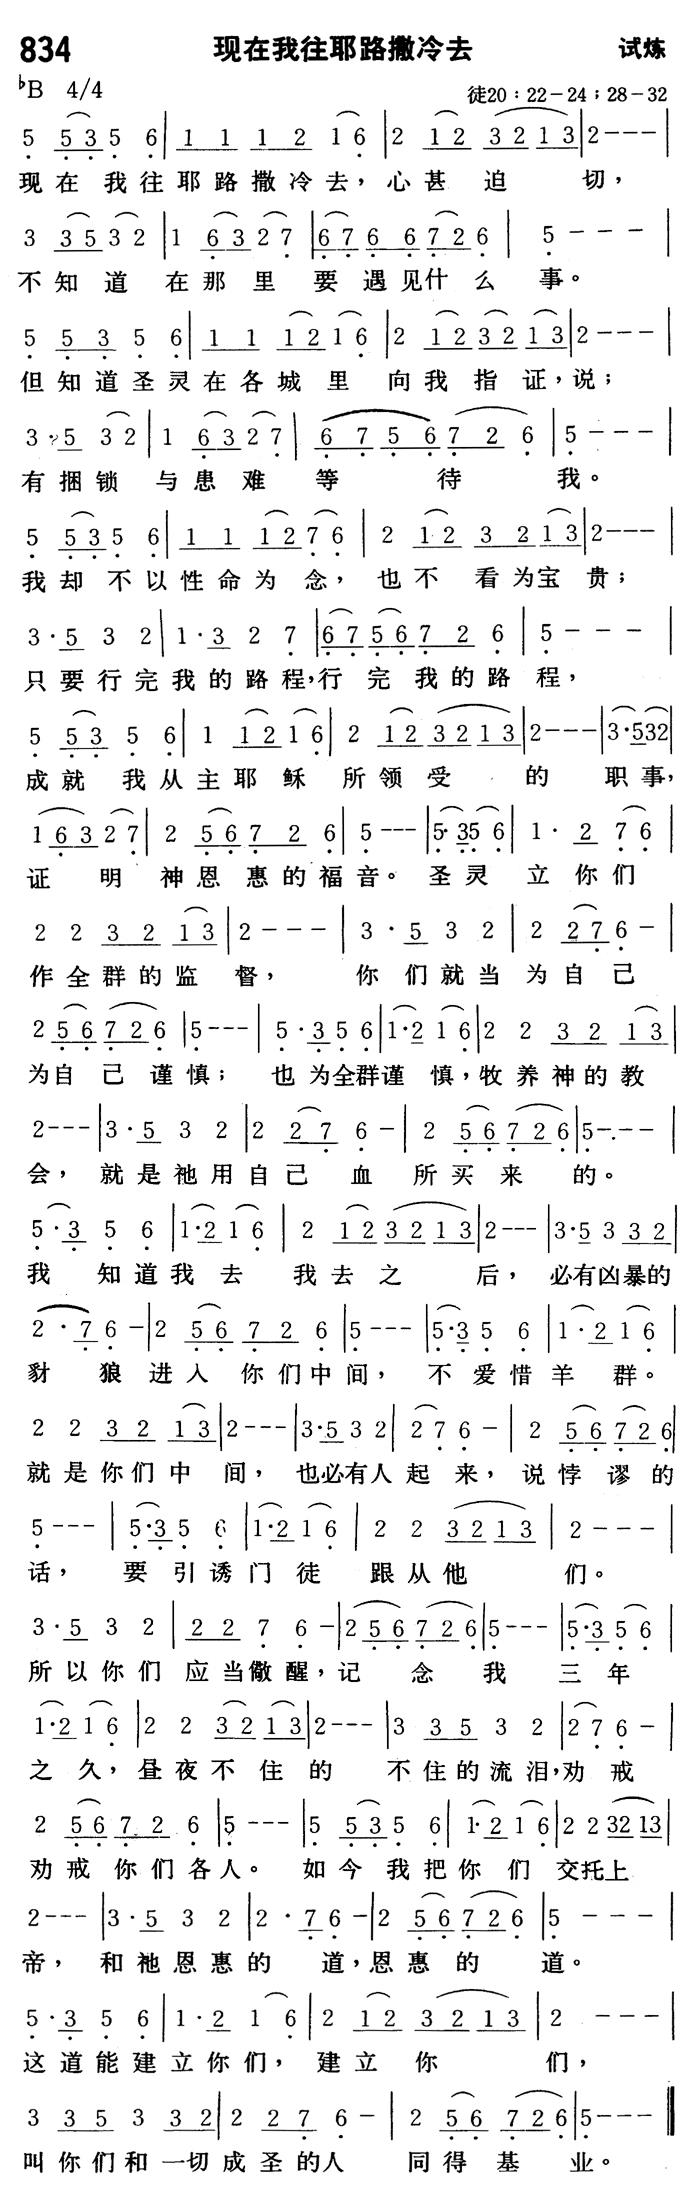 834 现在我往耶路撒冷去 试炼
♭B 4/4 徒20：22－24；28－32
5 5 3 5 6 | 1 1 1 2 1 6 | 2 1 2 3 2 1 3 | 2 - - - |
现在我往耶路撒冷去，心甚迫切，
3 3 5 3 2 | 1 6 3 2 7 | 6 7 6 6 7 2 6 | 5 - - - |
不知道在那里要遇见什么事。
5 5 3 5 6 | 1 1 1 2 1 6 | 2 1 2 3 2 1 3 | 2 - - - |
但知道圣灵在各城里向我指证，说；
3 · 5 3 2 | 1 6 3 2 7 | 6 7 5 6 7 2 6 | 5 - - - |
有捆锁与患难等待我。
5 5 3 5 6 | 1 1 1 2 7 6 | 2 1 2 3 2 1 3 | 2 - - - |
我却不以性命为念，也不看为宝贵；
3 · 5 3 2 | 1 · 3 2 7 | 6 7 5 6 7 2 6 | 5 - - - |
只要行完我的路程，行完我的路程，
5 5 3 5 6 | 1 1 2 1 6 | 2 1 2 3 2 1 3 | 2 - - - | 3 · 5 3 2 |
成就我从主耶稣所领受的职事，
1 6 3 2 7 | 2 5 6 7 2 6 | 5 - - - | 5 · 3 5 6 | 1 · 2 7 6 |
证明神恩惠的福音。圣灵立你们
2 2 3 2 1 3 | 2 - - - | 3 · 5 3 2 | 2 2 7 6 - |
作全群的监督，你们就当为自己
2 5 6 7 2 6 | 5 - - - | 5 · 3 5 6 | 1 · 2 1 6 | 2 2 3 2 1 3 |
为自己谨慎；也为全群谨慎，牧养神的教
2 - - - | 3 · 5 3 2 | 2 2 7 6 - | 2 5 6 7 2 6 | 5 - - - |
会，就是祂用自己血所买来的。
5 · 3 5 6 | 1 · 2 1 6 | 2 1 2 3 2 1 3 | 2 - - - | 3 · 5 3 3 2 |
我知道我去我去之后，必有凶暴的
2 · 7 6 - | 2 5 6 7 2 6 | 5 - - - | 5 · 3 5 6 | 1 · 2 1 6 |
豺狼进入你们中间，不爱惜羊群。
2 2 3 2 1 3 | 2 - - - | 3 · 5 3 2 | 2 7 6 - | 2 5 6 7 2 6 |
就是你们中间，也必有人起来，说悖谬的
5 - - - | 5 · 3 5 6 | 1 · 2 1 6 | 2 2 3 2 1 3 | 2 - - - |
话，要引诱门徒跟从他们。
3 · 5 3 2 | 2 2 7 6 - | 2 5 6 7 2 6 | 5 - - - | 5 · 3 5 6 |
所以你们应当儆醒，记念我三年
1 · 2 1 6 | 2 2 3 2 1 3 | 2 - - - | 3 3 5 3 2 | 2 7 6 - |
之久，昼夜不住的不住的流泪，劝戒
2 5 6 7 2 6 | 5 - - - | 5 5 3 5 6 | 1 · 2 1 6 | 2 2 3 2 1 3 |
劝戒你们各人。如今我把你们交托上
2 - - - | 3 · 5 3 2 | 2 · 7 6 - | 2 5 6 7 2 6 | 5 - - - |
帝，和祂恩惠的道，恩惠的道。
5 · 3 5 6 | 1 · 2 1 6 | 2 1 2 3 2 1 3 | 2 - - - |
这道能建立你们，建立你们，
3 3 5 3 3 2 | 2 2 7 6 - | 2 5 6 7 2 6 | 5 - - - ‖
叫你们和一切成圣的人同得基业。